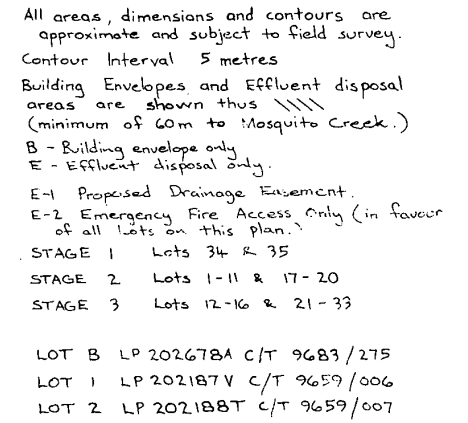 All areas, dimensions and contours are
approximate and subject to field survey.
Contour Interval 5 metres
Building Envelopes and Effluent disposal
areas are shown thus \\\\
(minimum of 60m to Mosquito Creek.)
B - Building envelope only
E - Effluent disposal only.
E-1 Proposed Drainage Easement.
E-2 Emergency Fire Access Only (in favour
of all lots on this plan.)
STAGE 1 Lots 34 & 35
STAGE 2 Lots 1-11 & 17-20
STAGE 3 Lots 12-16 & 21-33
LOT B LP 202678A C/T 9683/275
LOT 1 LP 202187V C/T 9659/006
LOT 2 LP 202188T C/T 9659/007